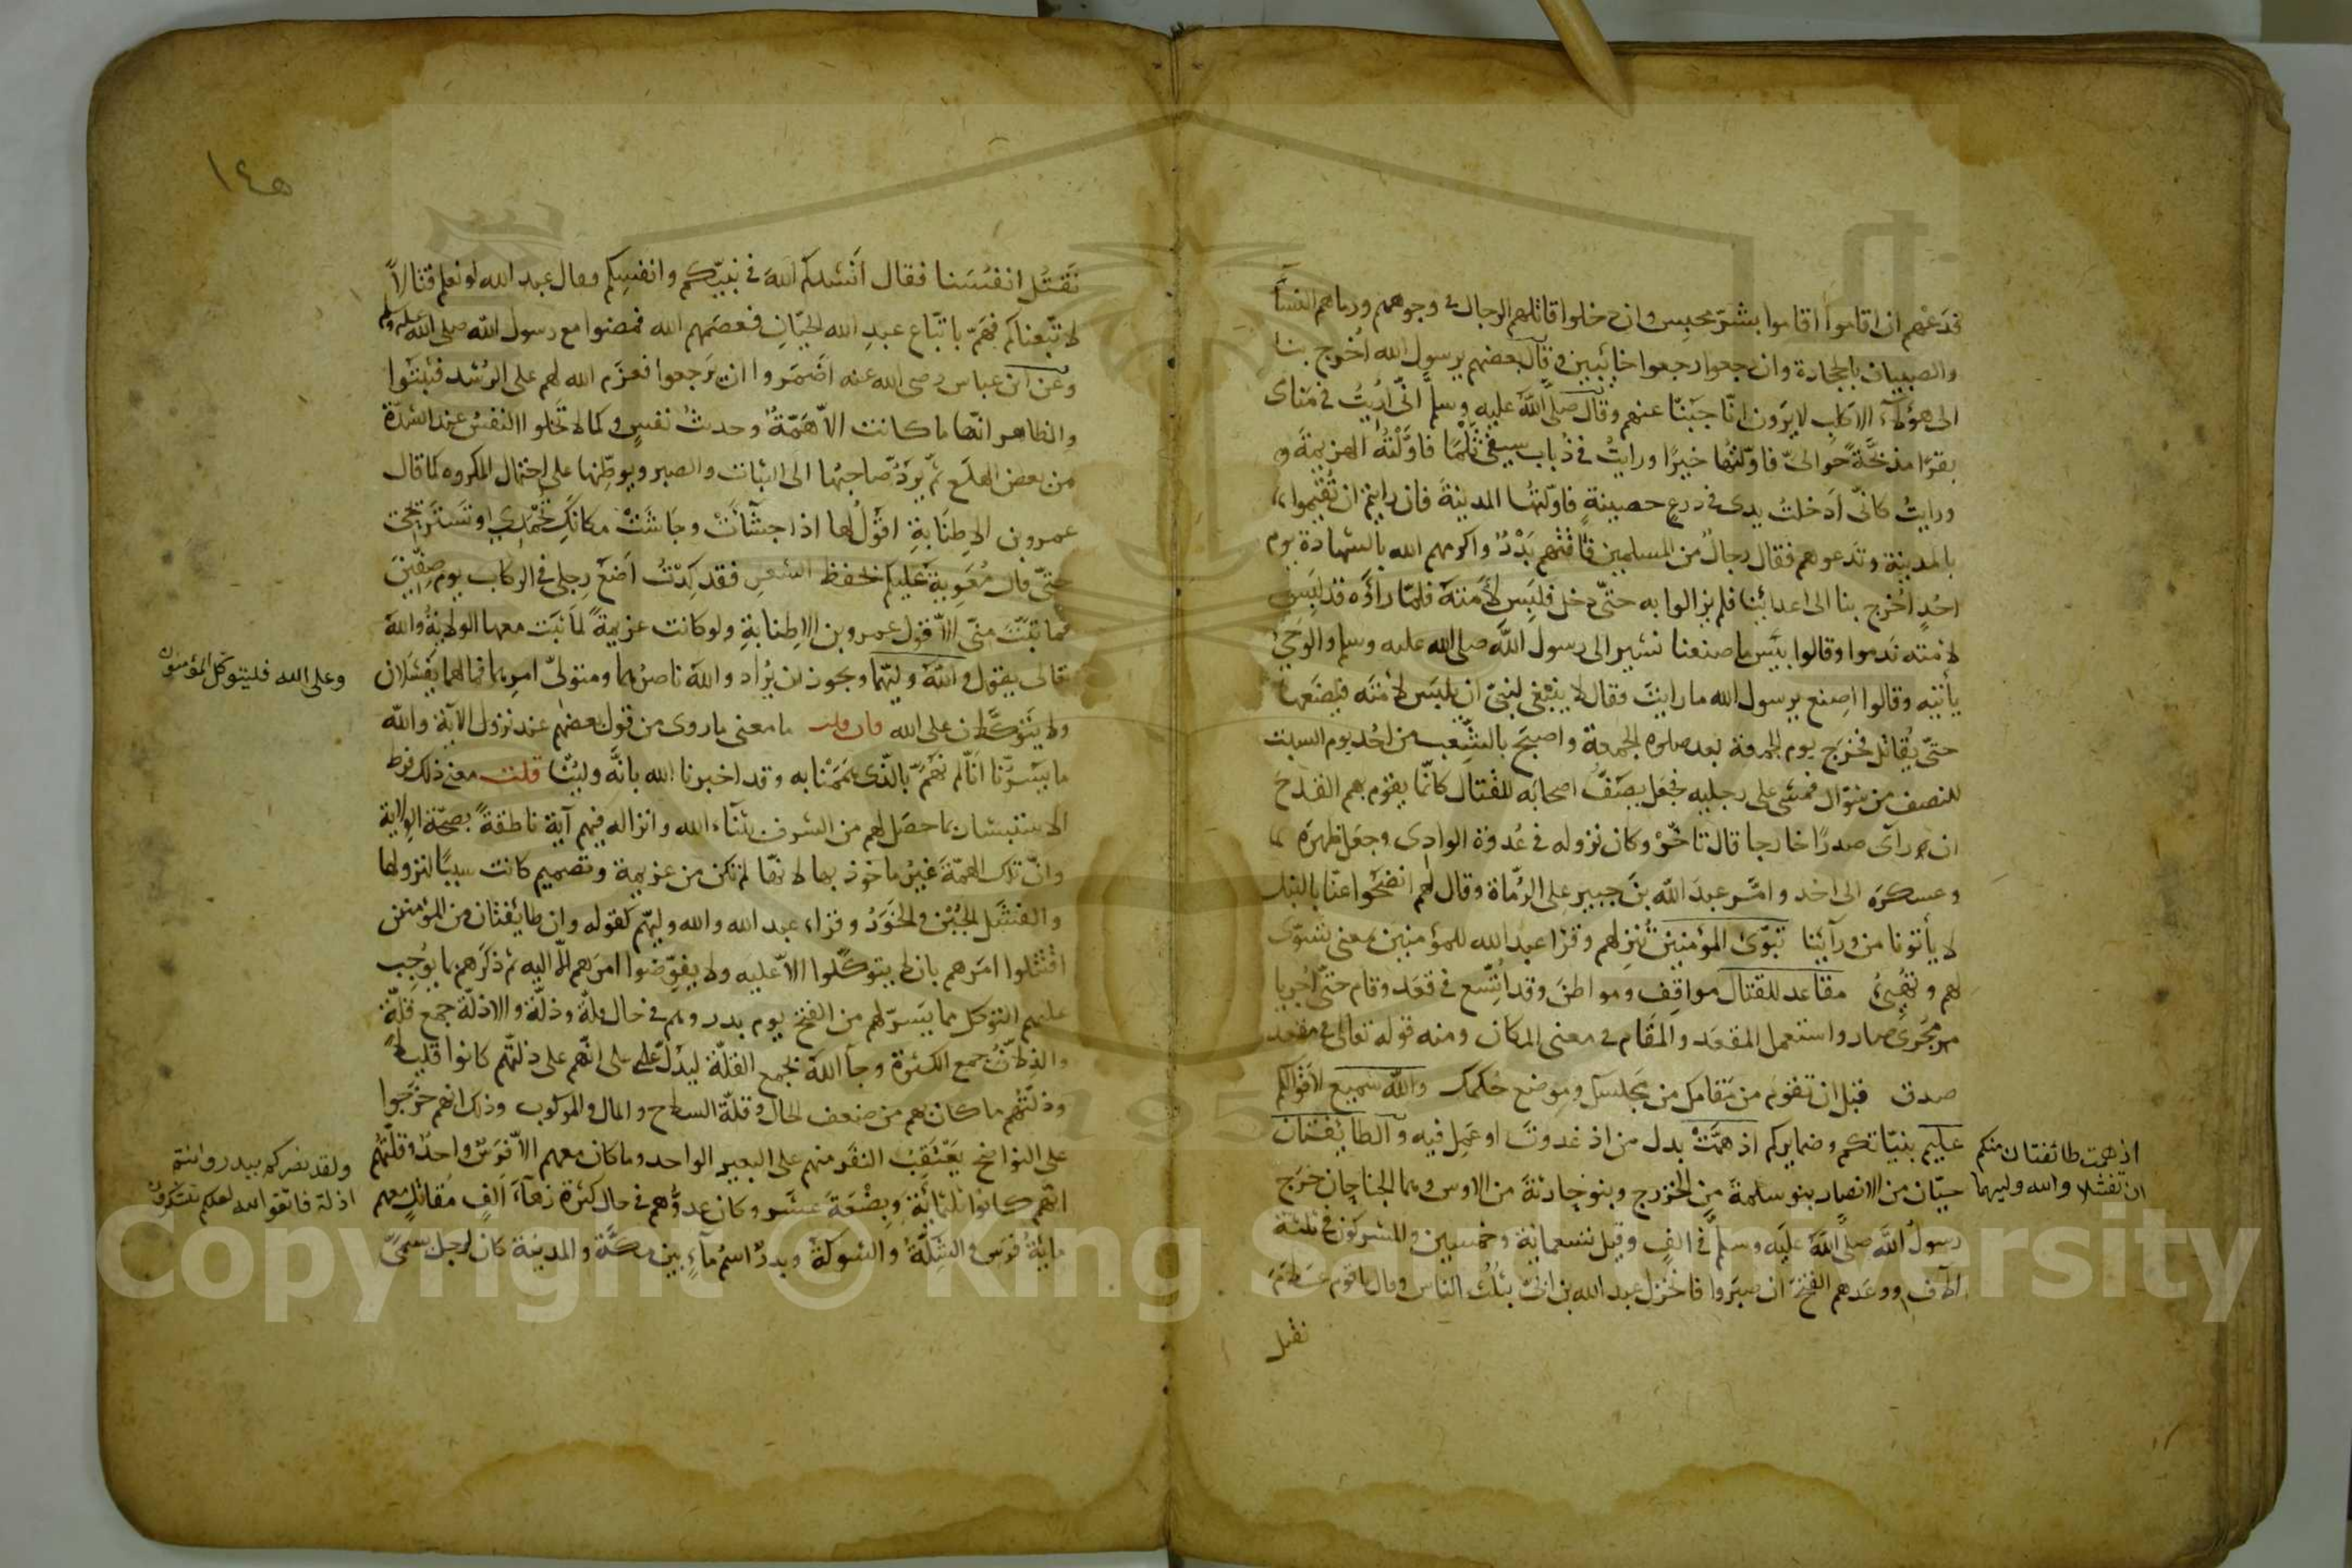 فدعهم ان اقاموا اقاموا بشر محبس وان دخلوا قاتلهم الرجال في وجوههم ورماهم النساء
والصبيان بالحجارة وان رجعوا رجعوا خائبين وقال بعضهم يرسول الله اخرج بنا
الى هؤلاء الاكلب لا يرون انّا جبنّا عنهم وقال صلّى اللّه عليه وسلم انّى أريتُ في منامى
بقرًا مذبّحةً حوالىّ فاوّلتُها خيرًا ورايتُ في ذُباب سيفى ثَلْمًا فاوّلْتُه الهزيمةَ و
ورايتُ كانّى اَدخلتُ يدى في درعٍ حصينةٍ فاوّلتها المدينةَ فان رايتم ان تُقيموا
بالمدينة وتدعوهم فقال رجالٌ من المسلمين فاتتهم بَدْرٌ واكرمهم الله بالشهادة يوم
احُدٍ اُخرج بنا الى اعدائنا فلم يزالوا به حتّى دخل فلبِس لأمَته فلمّا رأوْه قد لَبِس
لامته ندموا وقالوا بئس ما صنعنا نشير الى رسول اللّه صلى الله عليه وسلم والوحي
يأتيه وقالوا اصنع يرسول الله ما رايت فقال لا ينبغى لنبىّ ان يلبَس لأمَته فيضَعها
حتّى يُقاتل فخرَج يوم الجمعة بعد صلوة الجمعة واصبحَ بالشِّعب من احُد يوم السبت
للنصف من شوّال فمشى على رجليه فجعل يصفّ اصحابه للقتال كانّما يقوم بهم القدح
ان رآى صدرًا خارجا قال تاخّرْ وكان نزوله في عُدوَة الوادى وجعل ظهرَه
وعسكرَه الى احُد وامّر عبدَ اللّه بنَ جبير على الرُّماة وقال لهم انضَحوا عنّا بالنبل
لا يأتونا من ورآئنا تبوّئ المؤمنين تُنزلهم وقرا عبد الله للمؤمنين بمعنى تسوّى
لهم وتهيئُ مقاعد للقتال مواقِف ومواطنَ وقد اتُّسّع في قعَد وقام حتّى اُجريا
مجُرَى صار واستعمل المقعَد والمَقام في معنى المكان ومنه قوله تعالى في مقعد
صدق قبل ان تقوم من مَقامك من مَجلسك وموضع حُكمك واللّه سميع لاَقوالكم
عليم بنيّاتكم وضمايركم اذ همّتْ بدل من اذ غدوتَ او عمِل فيه والطايفتان
حيّان من الانصار بنو سلمةَ من الخزرج وبنو حارثةَ من الاوس وهما الجناحان خرَج
رسولُ اللّه صلّى اللّه عليه وسلم في الفٍ وقيل تسعمائة وخمسين والمشركون في ثلثة
الآف ووعدهم الفتحَ ان صبَروا فانخزل عبد الله بن ابىّ بثلُث الناس وقال يا قوم عَلامَ
نقتل
اذ همت طائفتان منكم
ان تفشلا والله وليهما
١٤٥
نَقتُل انفُسَنا فقال اَنشدكم اللّهَ في نبيّكم وانفسِكم وقال عبد الله لو نعلم قتالاً
لاتّبعناكم فهَمّ باتّباع عبدِ الله الحيّانِ فعصَمهم الله فمضوا مع رسول اللّه صلى الله عليه وسلم
وعن ابن عباس رضى الله عنه اَضمَروا ان يَرجعوا فعزَم الله لهم على الرُشد فثبتوا
والظاهر انّها ما كانت الاّ هَمّةً وحديثَ نفسٍ وكما لا تخلوا النفسُ عند الشدّة
من بعض الهلَع ثمّ يرَدّ صاحبُها الى الثبات والصبر ويوطّنها على احتمال المكروه كما قال
عمرو بن الاِطنَابةِ اقوْل لها اذا جشأتْ وجاشَتْ مكانَكِ تُحْمَدى او تسترِيحى
حتّى قال مُعوِيةُ عليكم بحفظ الشعر فقد كِدتُ اَضعُ رِجلى في الركاب يوم صِفّينَ
فما ثبّتَ منّى الاّ قول عمرو بن الاِطنابةِ ولو كانت عزيمةً لمَا ثبتت معها الولايةُ واللّه
تعالى يقول واللّه وليّهما ويجوز ان يُراد واللّه ناصرُهما ومتولّى امرِهما فما لهما يفشلان
ولا يتوكّلان على الله فان قلت ما معنى ما روى من قول بعضهم عند نزول الآية واللّه
ما يَسرّنا انّا لم نهُمّ بالّذى همَمْنا به وقد اخبرنا الله بانّه وليّنا قلت معنى ذلك فرط
الاستبشار بما حصَل لهم من الشرف بثناء الله وانزاله فيهم آية ناطقةً بصحّة الولاية
وانّ تلك الهمّةَ غيرُ ماخوذ بها لانّها لم تكن من عزيمة وتصميم كانت سببًا لنزولها
والفشَل الجُبْن والخَوَرُ وقراء عبد الله والله وليّهم كقوله وان طائفتان من المؤمنين
اقتتلوا امَرهم بان لا يتوكّلوا الاّ عليه ولا يفوّضوا امرَهم الاّ اليه ثم ذكّرهم ما يوجِب
عليهم التوكل مما يسّر لهم من الفتح يوم بدر وهم في حال قلّة وذلّة والاذلّة جمع قلّة
والذلاّن جمع الكثرة وجآ اللّه بجمع القلّة ليدَلّ على انّهم على ذلتهم كانوا قليلاً
وذلّتُهم ما كان بهم من ضعف الحال وقلّة السلاح والمال والمركوب وذلك انهم خرَجوا
على النواضح يَعْتَقبُ النفَر منهم على البعير الواحد وما كان معهم الاّ فرَسٌ واحدٌ وقلّتهُم
انهم كانوا ثلثمائة وبِضْعَةَ عشَر وكان عدوُّهم في حال كثرة زهآءَ اَلفِ مُقاتلٍ معهم
مايَةُ فرَس والشِّكّةُ والشوكةُ وبدرٌ اسمُ مآءٍ بين مكّة والمدينة كان لرجل يسمّى
وعلى الله فليتوكل المؤمنون
ولقد نصركم ببدر وانتم
اذلة فاتقوا الله لعلكم تشكرون
Copyright © King Saud University